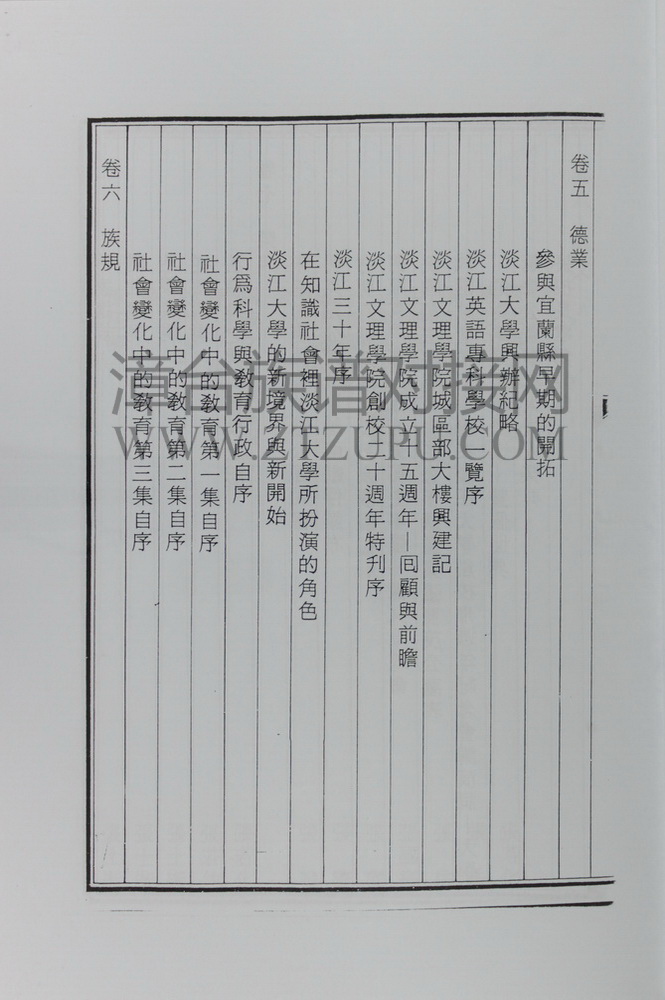 卷五　德業
參與宜蘭縣早期的開拓
淡江大學興辦紀略
淡江英語專科學校一覽序
淡江文理學院城區部大樓興建記
淡江文理學院成立十五週年—回顧與前瞻
淡江文理學院創校二十週年特刋序
淡江三十年序
在知識社會裡淡江大學所扮演的角色
淡江大學的新境界與新開始
行爲科學與敎育行政自序
社會變化中的敎育第一集自序
社會變化中的敎育第二集自序
社會變化中的敎育第三集自序
卷六　族規
漳台族谱对接网
WWW.ZTZUPU.COM